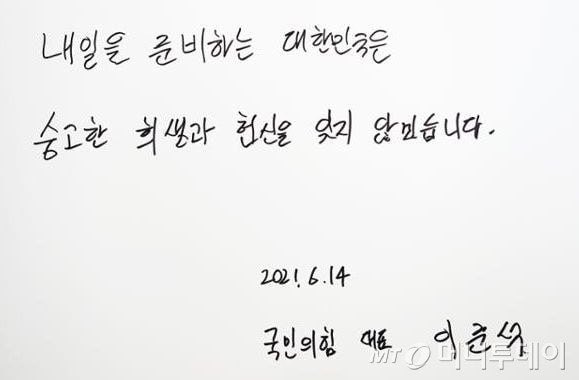 내일을 준비하는 대한민국은
숭고한 희생과 헌신을 잊지 않습니다.
2021. 6. 14
국민의힘 대표 이준석
MT 머니투데이